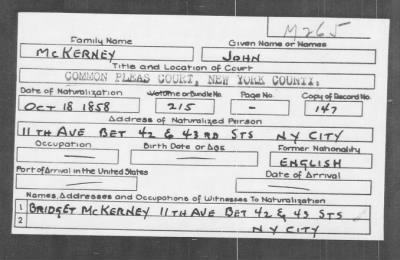 M265
Family Name Given Name or Names
McKERNEY JOHN
Title and Location of Court
COMMON PLEAS COURT, NEW YORK COUNTY.
Date of Naturalization Volume or Bundle No. Page No. Copy of Record No.
OCT 18 1858 215 - 147
Address of Naturalized Person
11TH AVE BET 42 & 43RD STS NY CITY
Occupation Birth Date or Age Former Nationality
— — ENGLISH
Port of Arrival in the United States Date of Arrival
— —
Names, Addresses and Occupations of Witnesses To Naturalization
1 BRIDGET McKERNEY 11TH AVE BET 42 & 43 STS
2 NY CITY